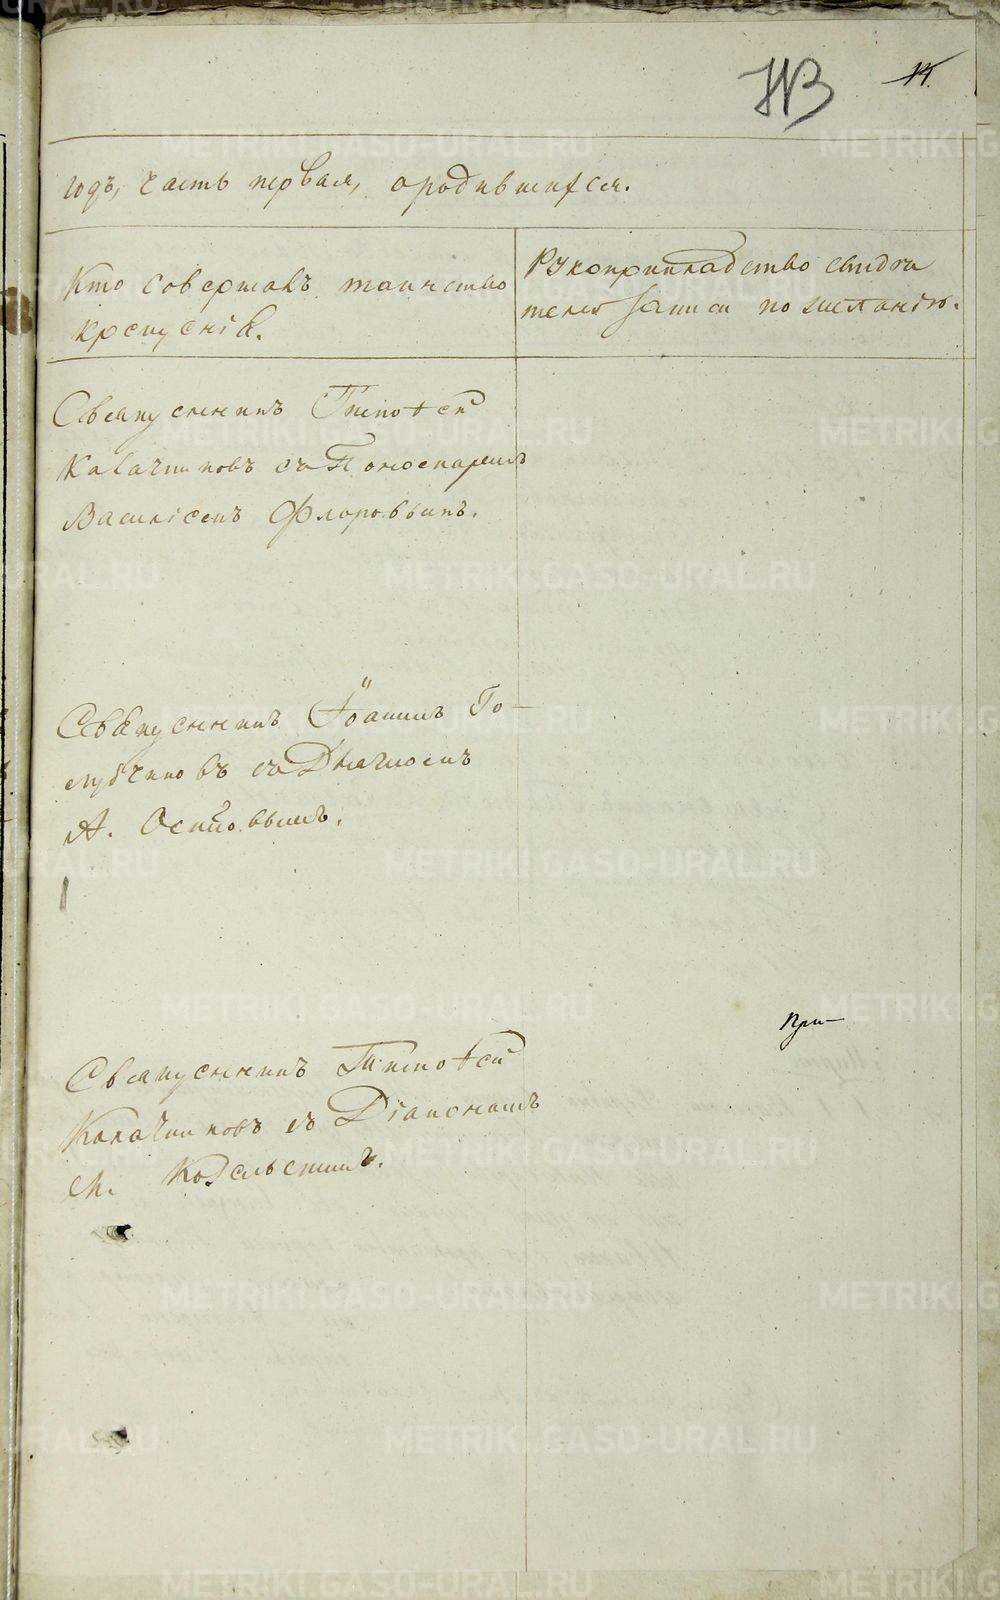 годъ, часть первая, ородившихся.
Кто совершалъ таинство
крещенія.
Рукоприкладство свидѣ
телей записи по желанію.
Священникъ Тимоѳей
Калачниковъ съ Пономаремъ
Василіемъ Флоровымъ.
Священникъ Іоаннъ Го-
лубчиковъ съ Дьячкомъ
А. Осиповымъ.
При-
Священникъ Тимоѳей
Калачниковъ съ Діакономъ
М. Козельскимъ.
METRIKI.GASO-URAL.RU